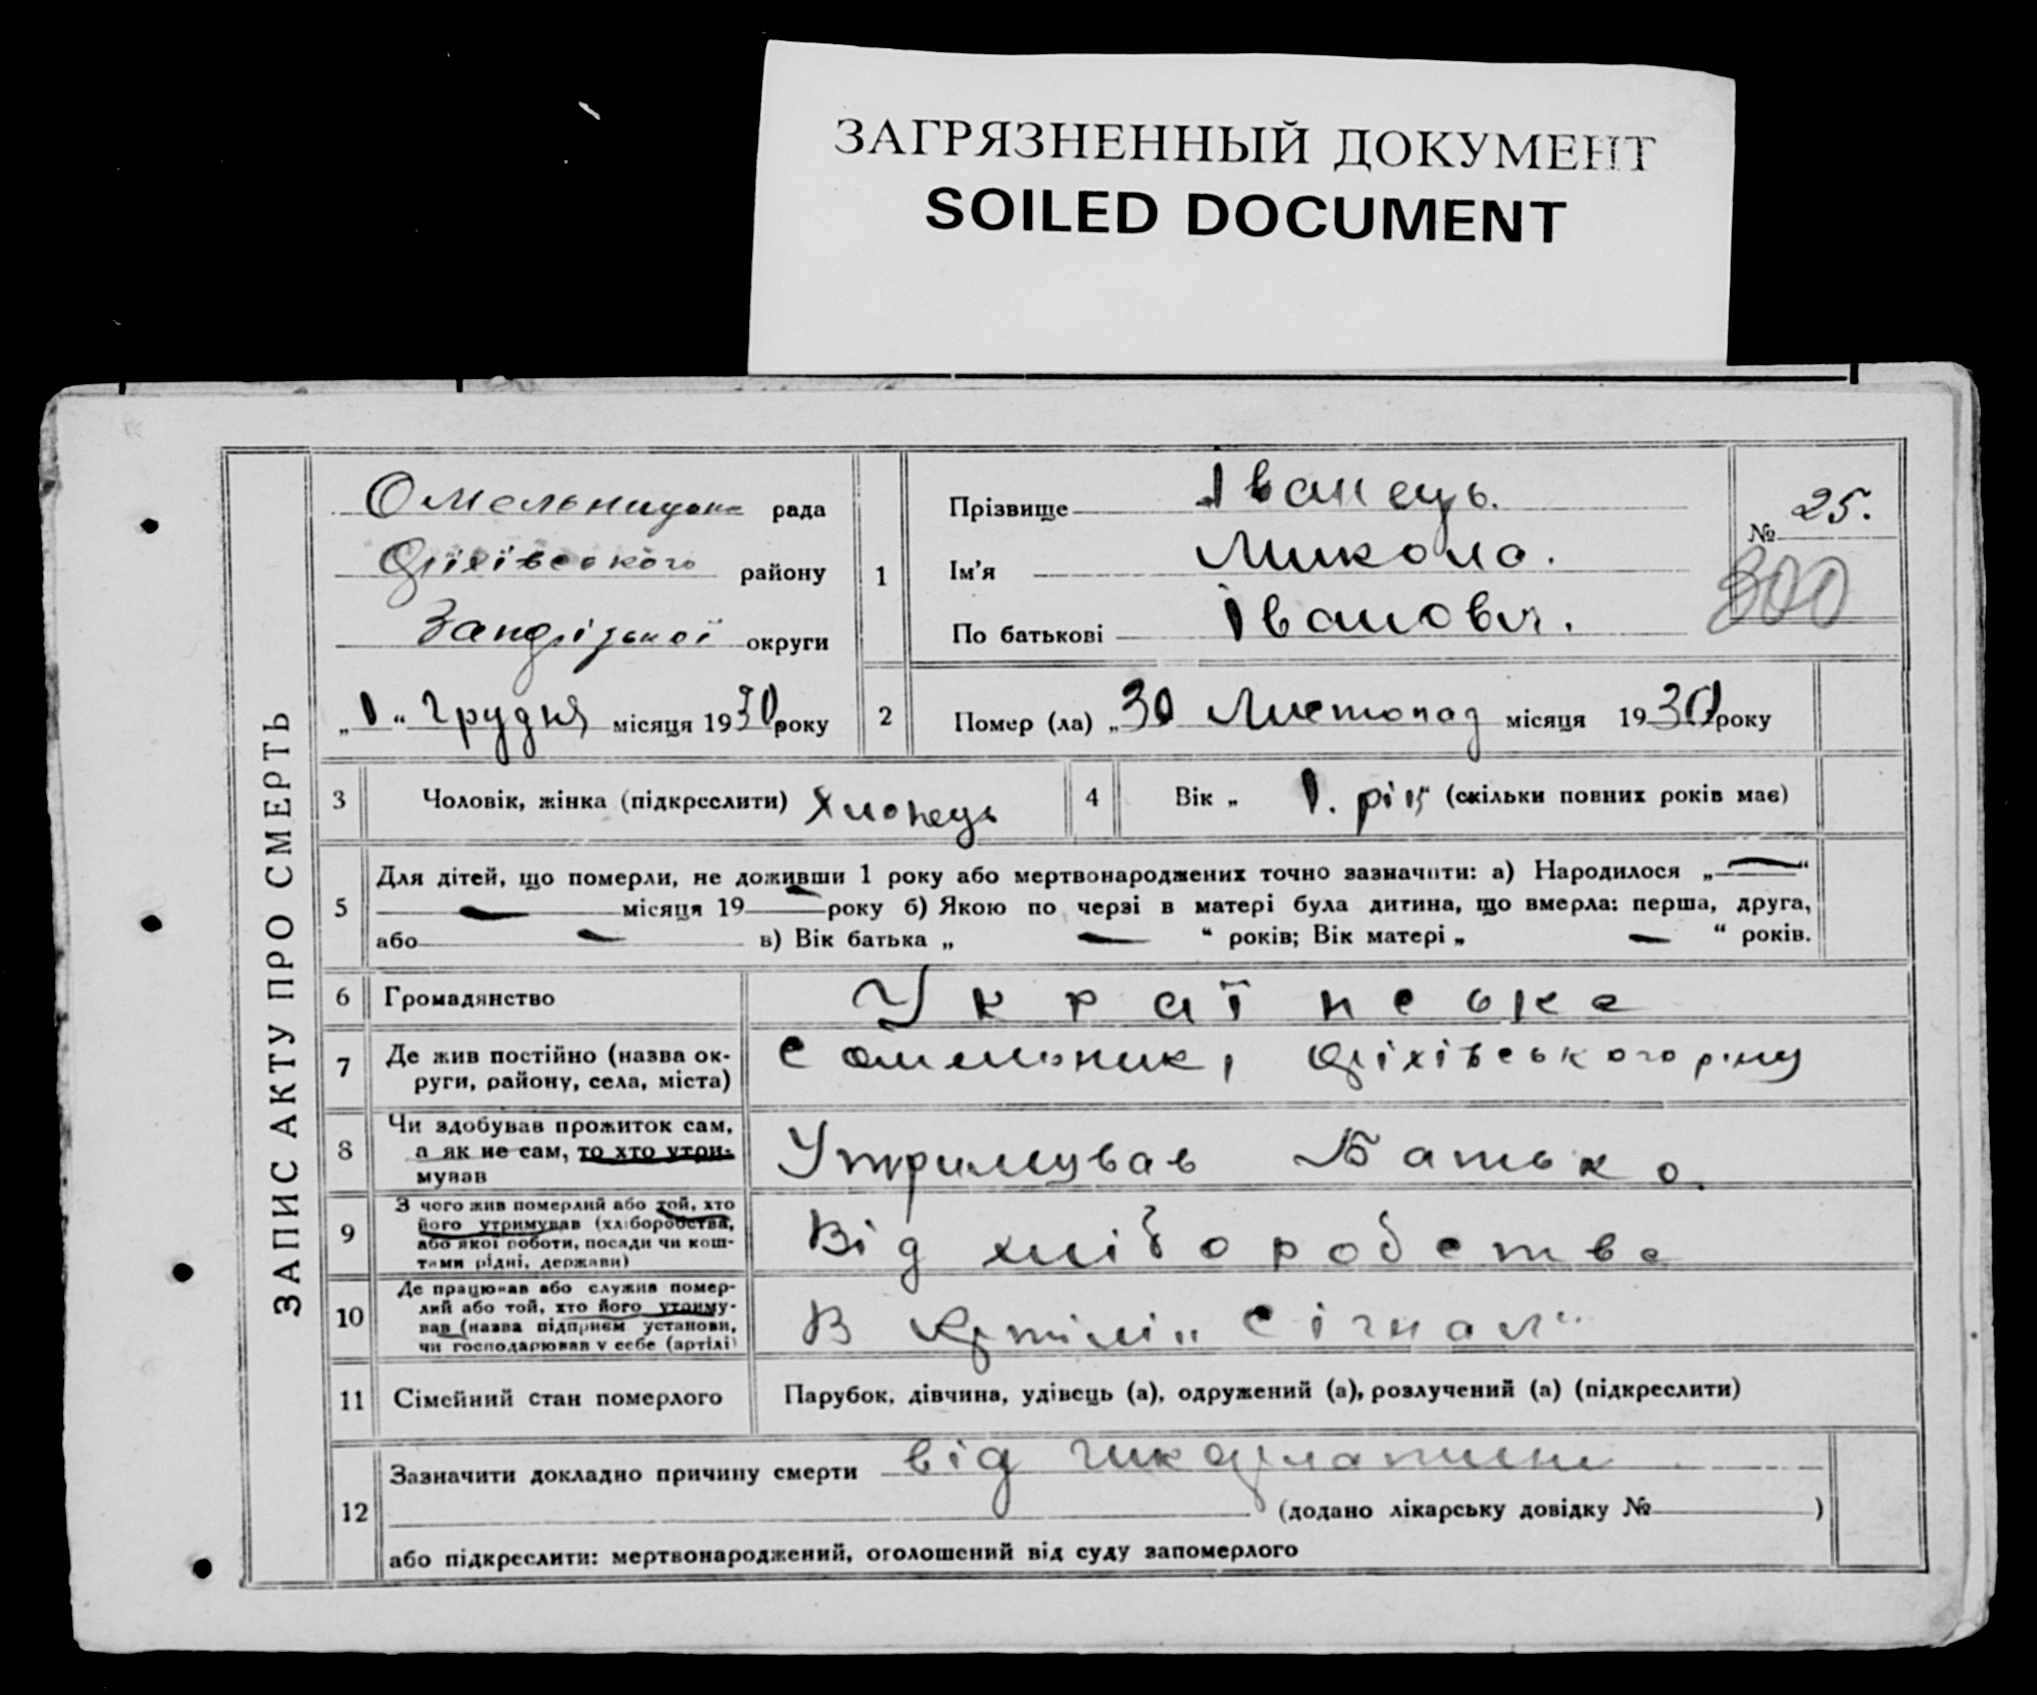 ЗАГРЯЗНЕННЫЙ ДОКУМЕНТ
SOILED DOCUMENT
ЗАПИС АКТУ ПРО СМЕРТЬ
Омельницька рада
Оріхівського району
Запорізької округи
„1“ Грудня місяця 1930 року
1
Прізвище Іванець.
Ім'я Микола.
По батькові Іванович.
№ 25.
300
2 Помер (ла) „30 Листопад місяця 1930 року
3 Чоловік, жінка (підкреслити) Хлопець
4 Вік „ 1. рік (скільки повних років має)
5 Для дітей, що померли, не доживши 1 року або мертвонароджених точно зазначити: а) Народилося „ “
місяця 19 року б) Якою по черзі в матері була дитина, що вмерла: перша, друга,
або в) Вік батька „ “ років; Вік матері „ “ років.
6 Громадянство Українське
7 Де жив постійно (назва ок-
руги, району, села, міста)
с Омельник, Оріхівського р-ну
8 Чи здобував прожиток сам,
а як не сам, то хто утри-
мував
Утримував Батько.
9 З чого жив померлий або той, хто
його утримував (хліборобства,
або якої роботи, посади чи кош-
тами рідні, держави)
Від хліборобства
10 Де працював або служив помер-
лий або той, хто його утриму-
вав (назва підприєм установи,
чи господарював у себе (артілі)
В Артілі „Сігнал“
11 Сімейний стан померлого Парубок, дівчина, удівець (а), одружений (а), розлучений (а) (підкреслити)
12 Зазначити докладно причину смерти від
(додано лікарську довідку № )
або підкреслити: мертвонароджений, оголошений від суду запомерлого